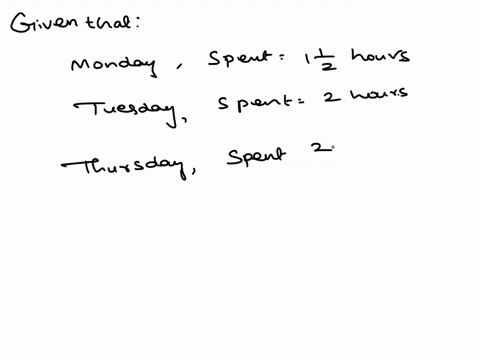 Given that:
Monday, Spent = 1 1/2 hours
Tuesday, Spent = 2 hours
Thursday, Spent 2